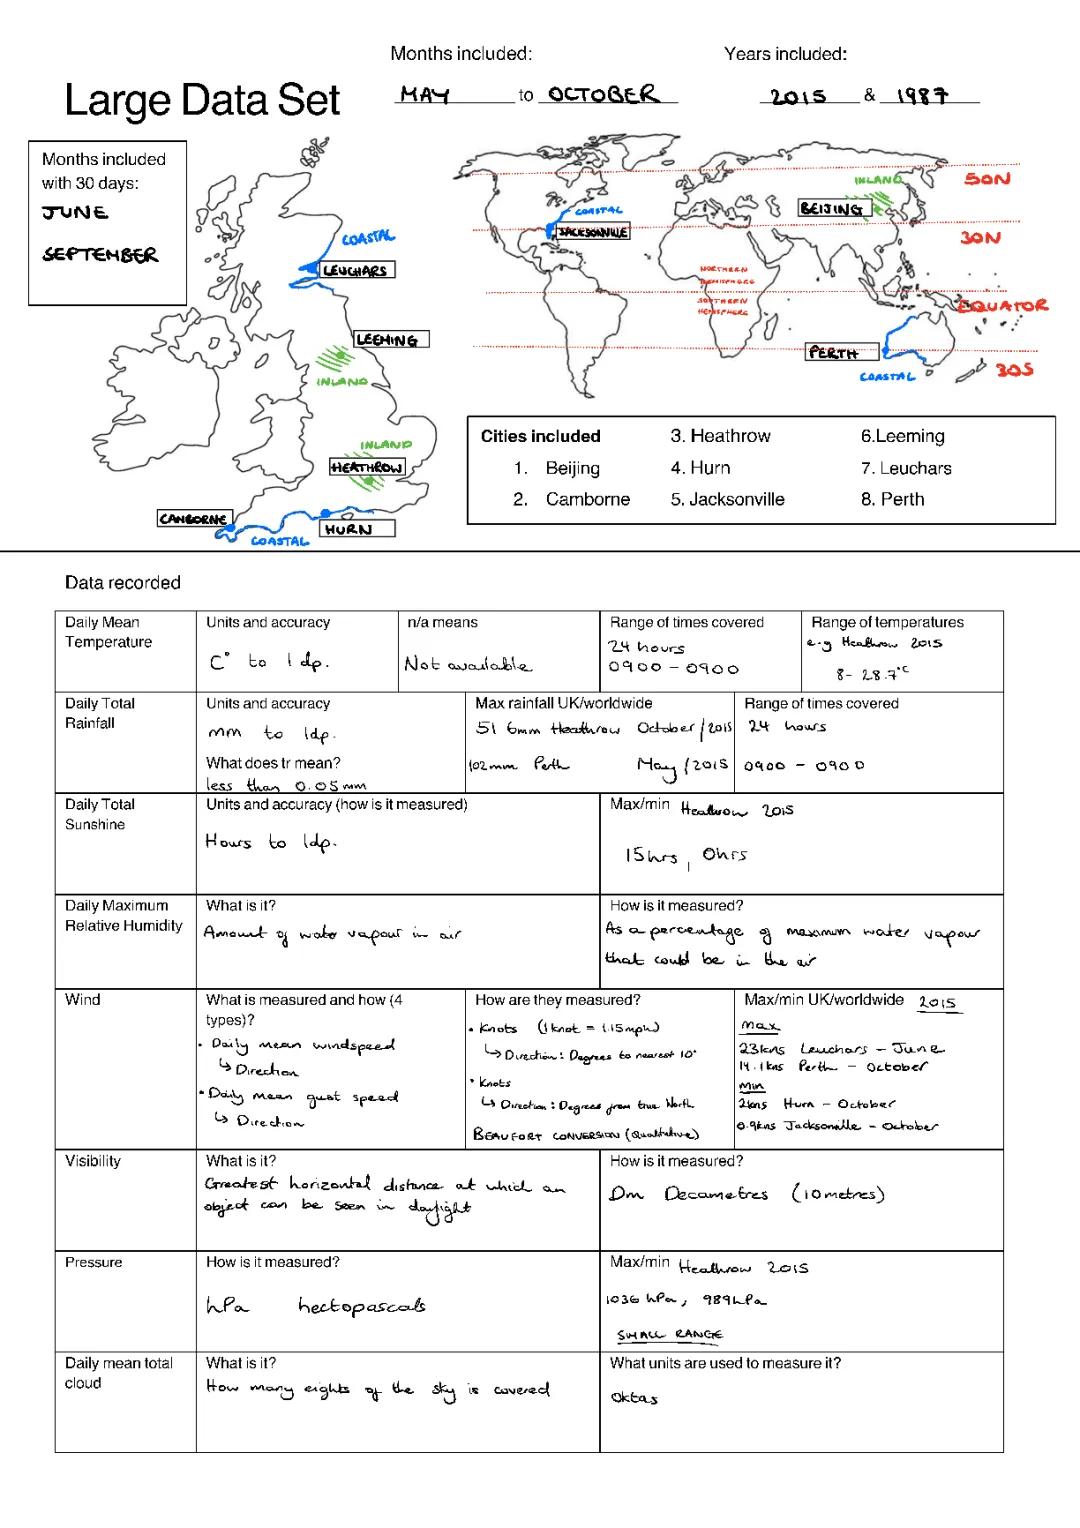 Months included:
Years included:
Large Data Set
MAY to OCTOBER
2015 & 1987
Months included
with 30 days:
JUNE
SEPTEMBER
COASTAL
LEUCHARS
LEEMING
INLAND
INLAND
HEATHROW
CAMBORNE
HURN
COASTAL
INLAND
50N
BEIJING
COASTAL
JACKSONVILLE
30N
NORTHERN
HEMISPHERE
SOUTHERN
HEMISPHERE
EQUATOR
PERTH
COASTAL
30S
Cities included
1. Beijing
2. Camborne
3. Heathrow
4. Hurn
5. Jacksonville
6.Leeming
7. Leuchars
8. Perth
Data recorded
Daily Mean
Temperature
Units and accuracy
C° to 1dp.
n/a means
Not available
Range of times covered
24 hours
0900 - 0900
Range of temperatures
e.g Heathrow 2015
8 - 28.7°C
Daily Total
Rainfall
Units and accuracy
mm to 1dp.
What does tr mean?
less than 0.05mm
Max rainfall UK/worldwide
51 6mm Heathrow October/2015
102mm Perth May/2015
Range of times covered
24 hours
0900 - 0900
Daily Total
Sunshine
Units and accuracy (how is it measured)
Hours to 1dp.
Max/min Heathrow 2015
15hrs, 0hrs
Daily Maximum
Relative Humidity
What is it?
Amount of water vapour in air
How is it measured?
As a percentage of maximum water vapour
that could be in the air
Wind
What is measured and how (4
types)?
• Daily mean windspeed
↳ Direction
• Daily mean gust speed
↳ Direction
How are they measured?
• Knots (1knot = 1.15mph)
↳ Direction: Degrees to nearest 10°
• Knots
↳ Direction: Degrees from true North
BEAUFORT CONVERSION (Qualitative)
Max/min UK/worldwide 2015
Max
23kns Leuchars - June
14.1kns Perth - October
Min
2kns Hurn - October
0.9kns Jacksonville - October
Visibility
What is it?
Greatest horizontal distance at which an
object can be seen in daylight
How is it measured?
Dm Decametres (10metres)
Pressure
How is it measured?
hPa hectopascals
Max/min Heathrow 2015
1036 hPa, 989hPa
SMALL RANGE
Daily mean total
cloud
What is it?
How many eights of the sky is covered
What units are used to measure it?
Oktas